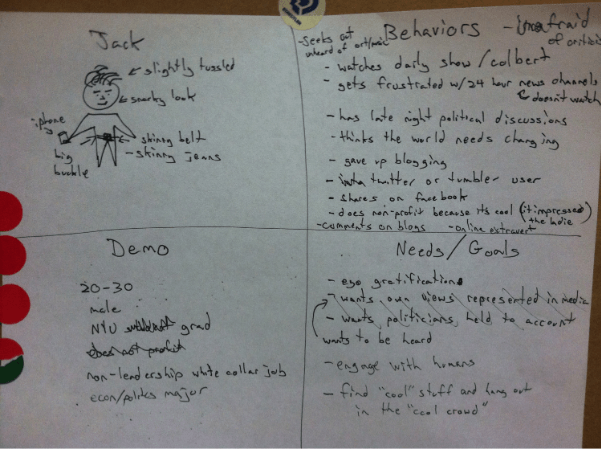 Jack
slightly tussled
snarky look
iphone
skinny belt
- skinny jeans
big
buckle
Behaviors
- unafraid
of criticism
- seeks out
unheard of art/music
- watches daily show / colbert
- gets frustrated w/ 24 hour news channels
doesn't watch
- has late night political discussions
- thinks the world needs changing
- gave up blogging
- twitter or tumbler user
- shares on facebook
- does non-profit because its cool (it impresses)
the ladie
- comments on blogs - online extrovert
Demo
20-30
male
NYU grad
does not profit
non-leadership white collar job
econ/politcs major
Needs/Goals
- ego gratification
- wants own views represented in media
- wants politicians held to account
wants to be heard
- engage with humans
- find "cool" stuff and hang out
in the "cool crowd"